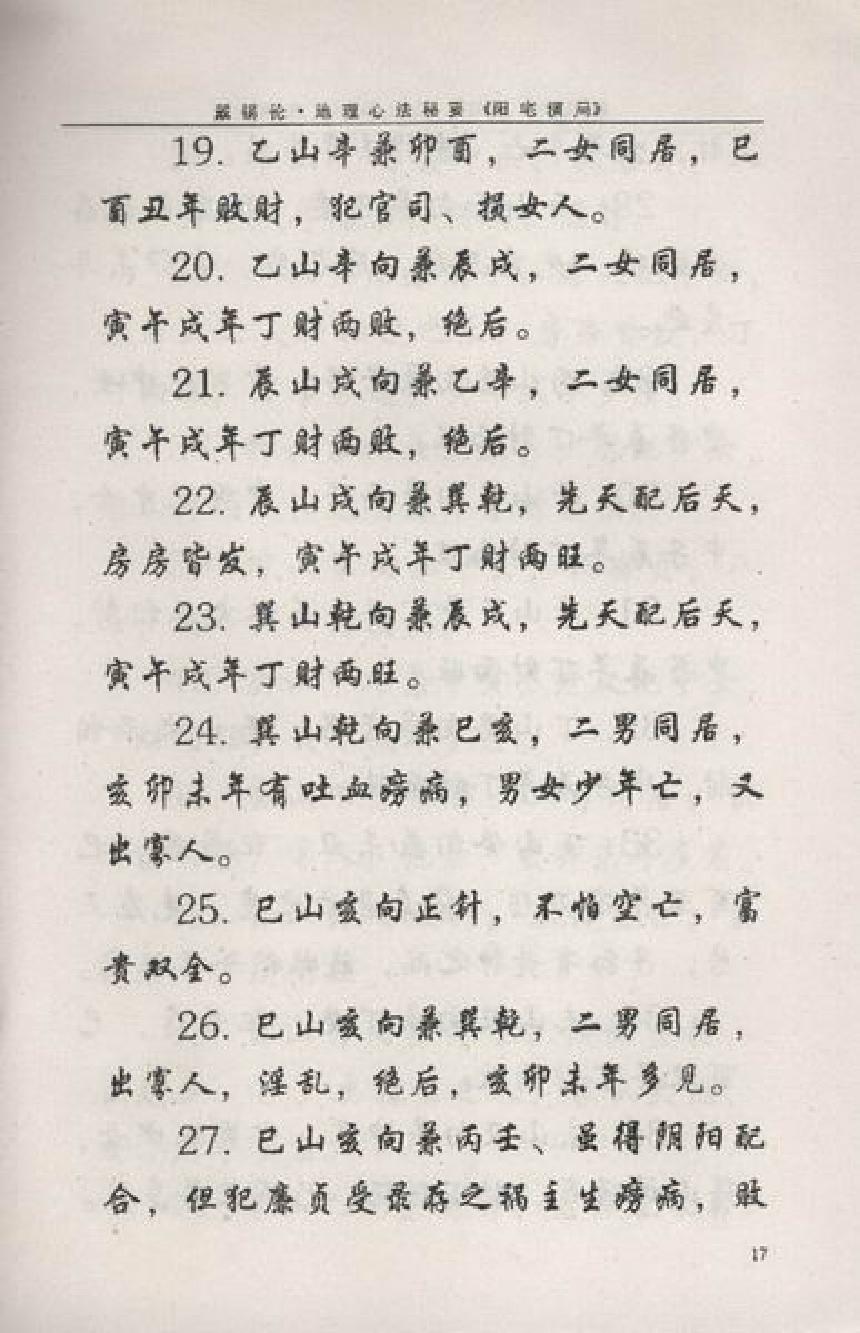 戴锡伦·地理心法秘要《阳宅摘局》
19. 乙山辛兼卯酉，二女同居，巳
酉丑年败财，犯官司、损女人。
20. 乙山辛向兼辰戌，二女同居，
寅午戌年丁财两败，绝后。
21. 辰山戌向兼乙辛，二女同居，
寅午戌年丁财两败，绝后。
22. 辰山戌向兼巽乾，先天配后天，
房房皆发，寅午戌年丁财两旺。
23. 巽山乾向兼辰戌，先天配后天，
寅午戌年丁财两旺。
24. 巽山乾向兼巳亥，二男同居，
亥卯未年有吐血痨病，男女少年亡，又
出寡人。
25. 巳山亥向正针，不怕空亡，富
贵双全。
26. 巳山亥向兼巽乾，二男同居，
出寡人，淫乱，绝后，亥卯未年多见。
27. 巳山亥向兼丙壬、虽得阴阳配
合，但犯廉贞受录存之祸主生痨病，败
17